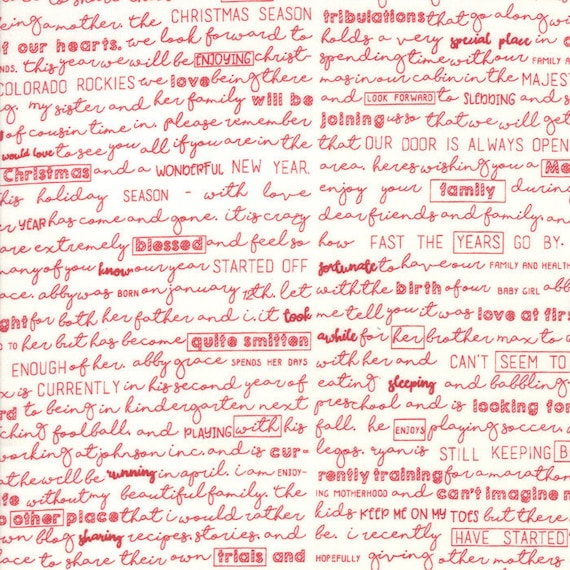 being a mother. the CHRISTMAS SEASON tribulations that go along wi
f our hearts. we look forward to holds a very special place in o
NDS. this year we will be ENJOYING christ- spending time with our FAMILY A
COLORADO ROCKIES we love being there mas in our cabin in the MAJEST
g. my sister and her family will be and LOOK FORWARD to SLEDDING and s
of cousin time in. please remember joining us so that we will get
would love to see you all if you are in the that OUR DOOR IS ALWAYS OPEN
Christmas and a WONDERFUL NEW YEAR. area. here's wishing you a Me
his holiday SEASON - with love enjoy your family durin
er YEAR has come and gone. it is crazy dear friends and family. an
are extremely blessed and feel so how FAST THE YEARS GO BY.
many of you know our year STARTED OFF fortunate to have our FAMILY AND HEALTH
ace. abby was BORN on january 12th. let with the birth of our BABY GIRL abb
ght for both her father and i. it took me tell you it was love at firs
O TO her but has become quite smitten awhile for her brother max to w
ENOUGH of her. abby grace SPENDS HER DAYS with her and CAN'T SEEM TO
x is CURRENTLY in his second year of eating sleeping and babbling.
rd to being in kindergarten next preschool and is looking for
ching football. and PLAYING with his fall. he ENJOYS playing soccer.
working at johnson inc. and is cur- legos. ryan is STILL KEEPING B
at he will be running in april. i am ENJOY- rently training for a marathon
fe without my beautiful family. the ING MOTHERHOOD AND can't imagine m
o other place that i would rather kids KEEP ME ON MY TOES but there
wn blog sharing recipes. stories. and be. i recently HAVE STARTED
ace to share their own trials and HOPEFULLY giving other mothers